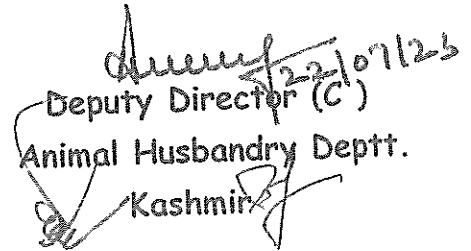 22/07/23
Deputy Director (C)
Animal Husbandry Deptt.
Kashmir